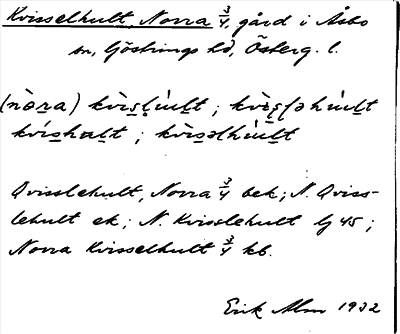 Kvisselhult, Norra 3/4, gård i Åsbo
sn, Göstrings hd, Österg. l.
(nò̱ra) kvìs̱ḷúḻt ; kvìs̱ḷəhúḻt
kvís̱haḻt ; kvìs̱əlhúḻt
Qvisslehult, Norra 3/4 bek; N. Qviss-
lehult ek; N. Kvisslehult lj 45;
Norra Kvisselhult 3/4 kb.
Erik Alm 1932